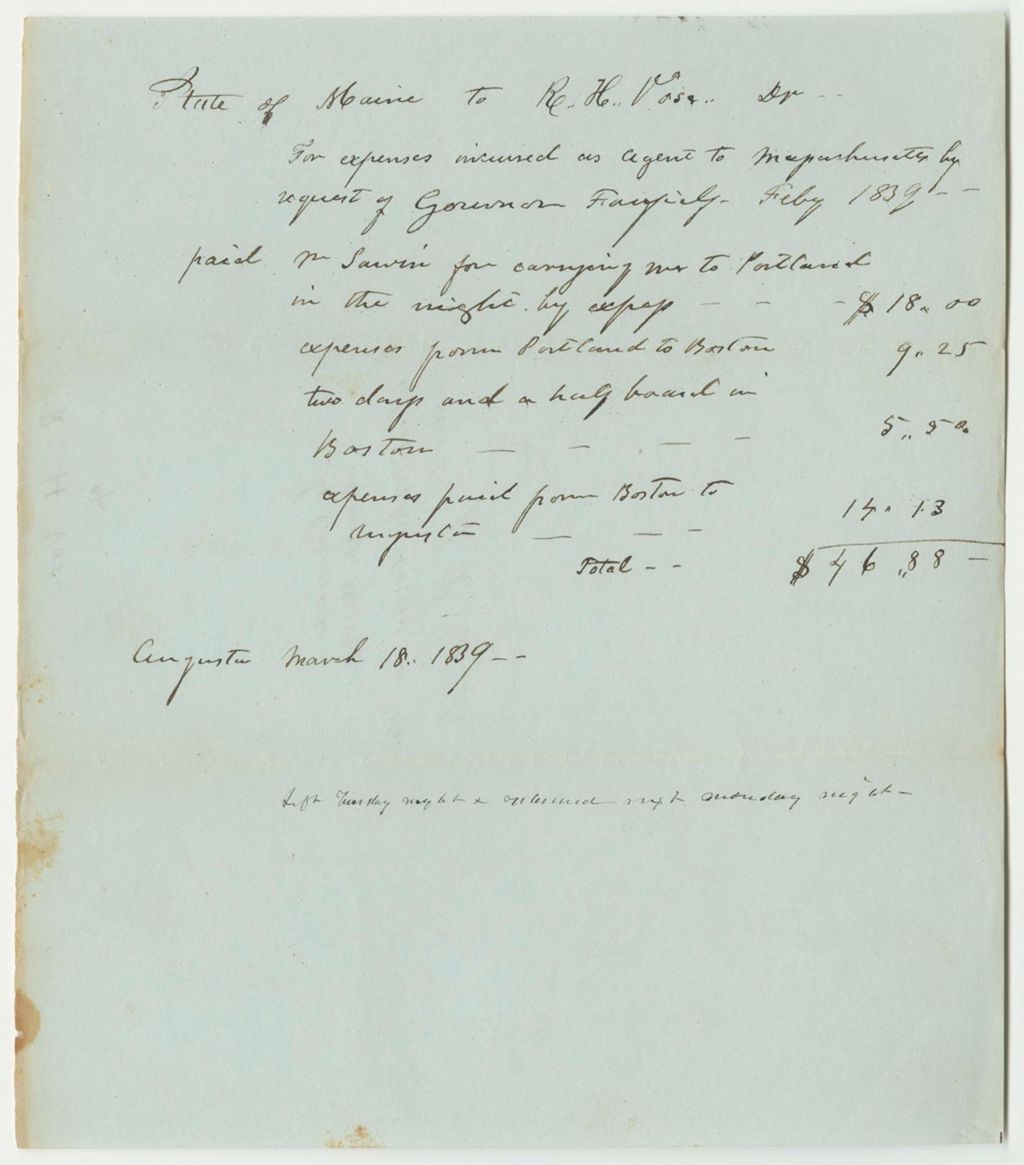 State of Maine to R. H. Vose. Dr --
For expenses incurred as agent to Massachusetts by
request of Governor Fairfield - Feby 1839 - -
paid Mr Sawin for carrying me to Portland
in the night by express - - - $ 18.00
expenses from Portland to Boston 9.25
two days and a half board in
Boston - - - - 5.50
expenses paid from Boston to
Augusta - - - 14.13
Total - - $ 46.88 -
Augusta March 18. 1839 - -
Left Tuesday night & returned next monday night -